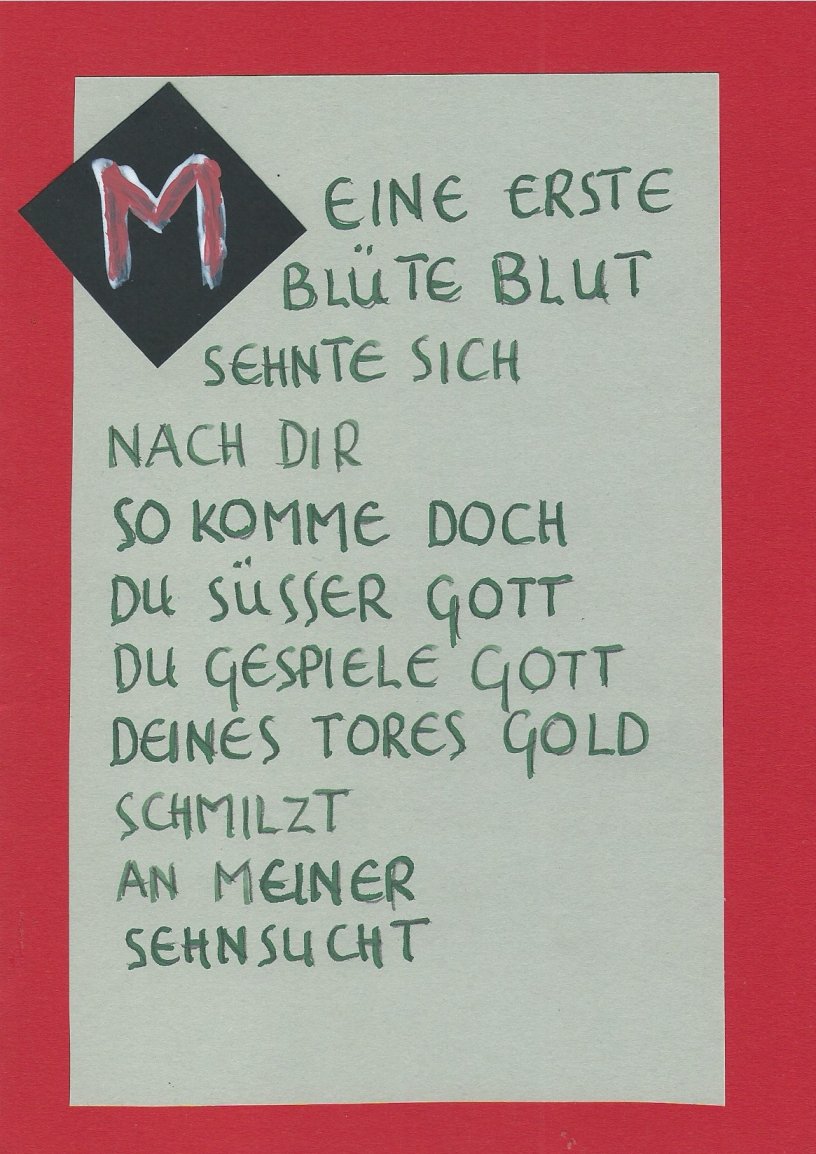 MEINE ERSTE
BLÜTE BLUT
SEHNTE SICH
NACH DIR
SO KOMME DOCH
DU SÜSSER GOTT
DU GESPIELE GOTT
DEINES TORES GOLD
SCHMILZT
AN MEINER
SEHNSUCHT